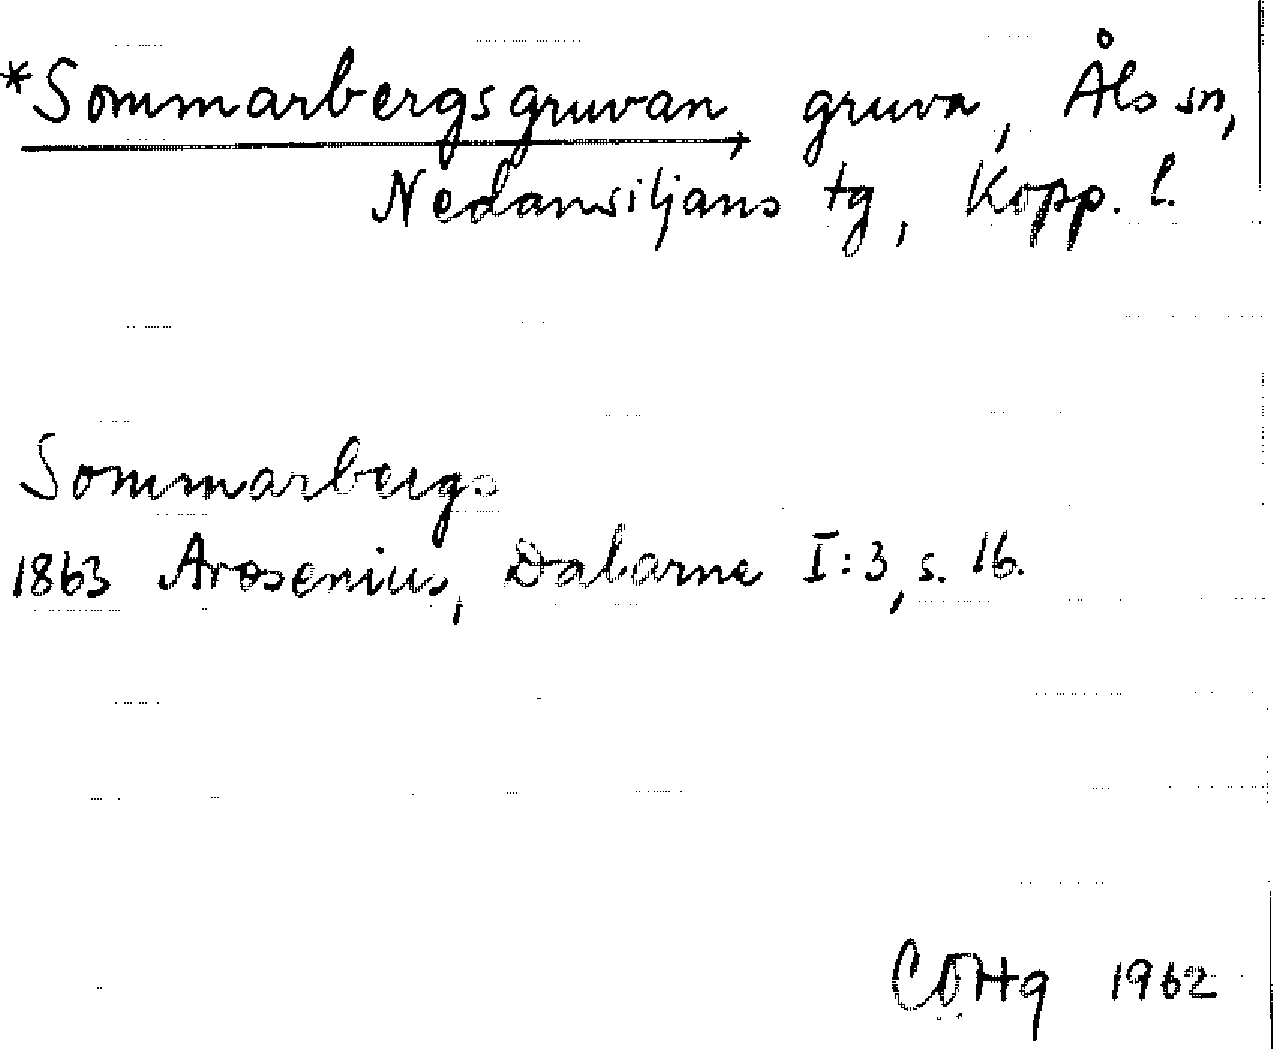 *Sommarbergsgruvan, gruva, Åls sn,
Nedansiljans tg, Kopp. l.
Sommarbergs
1863 Arosenius, Dalarne I:3, s. 16.
CÖHg 1962